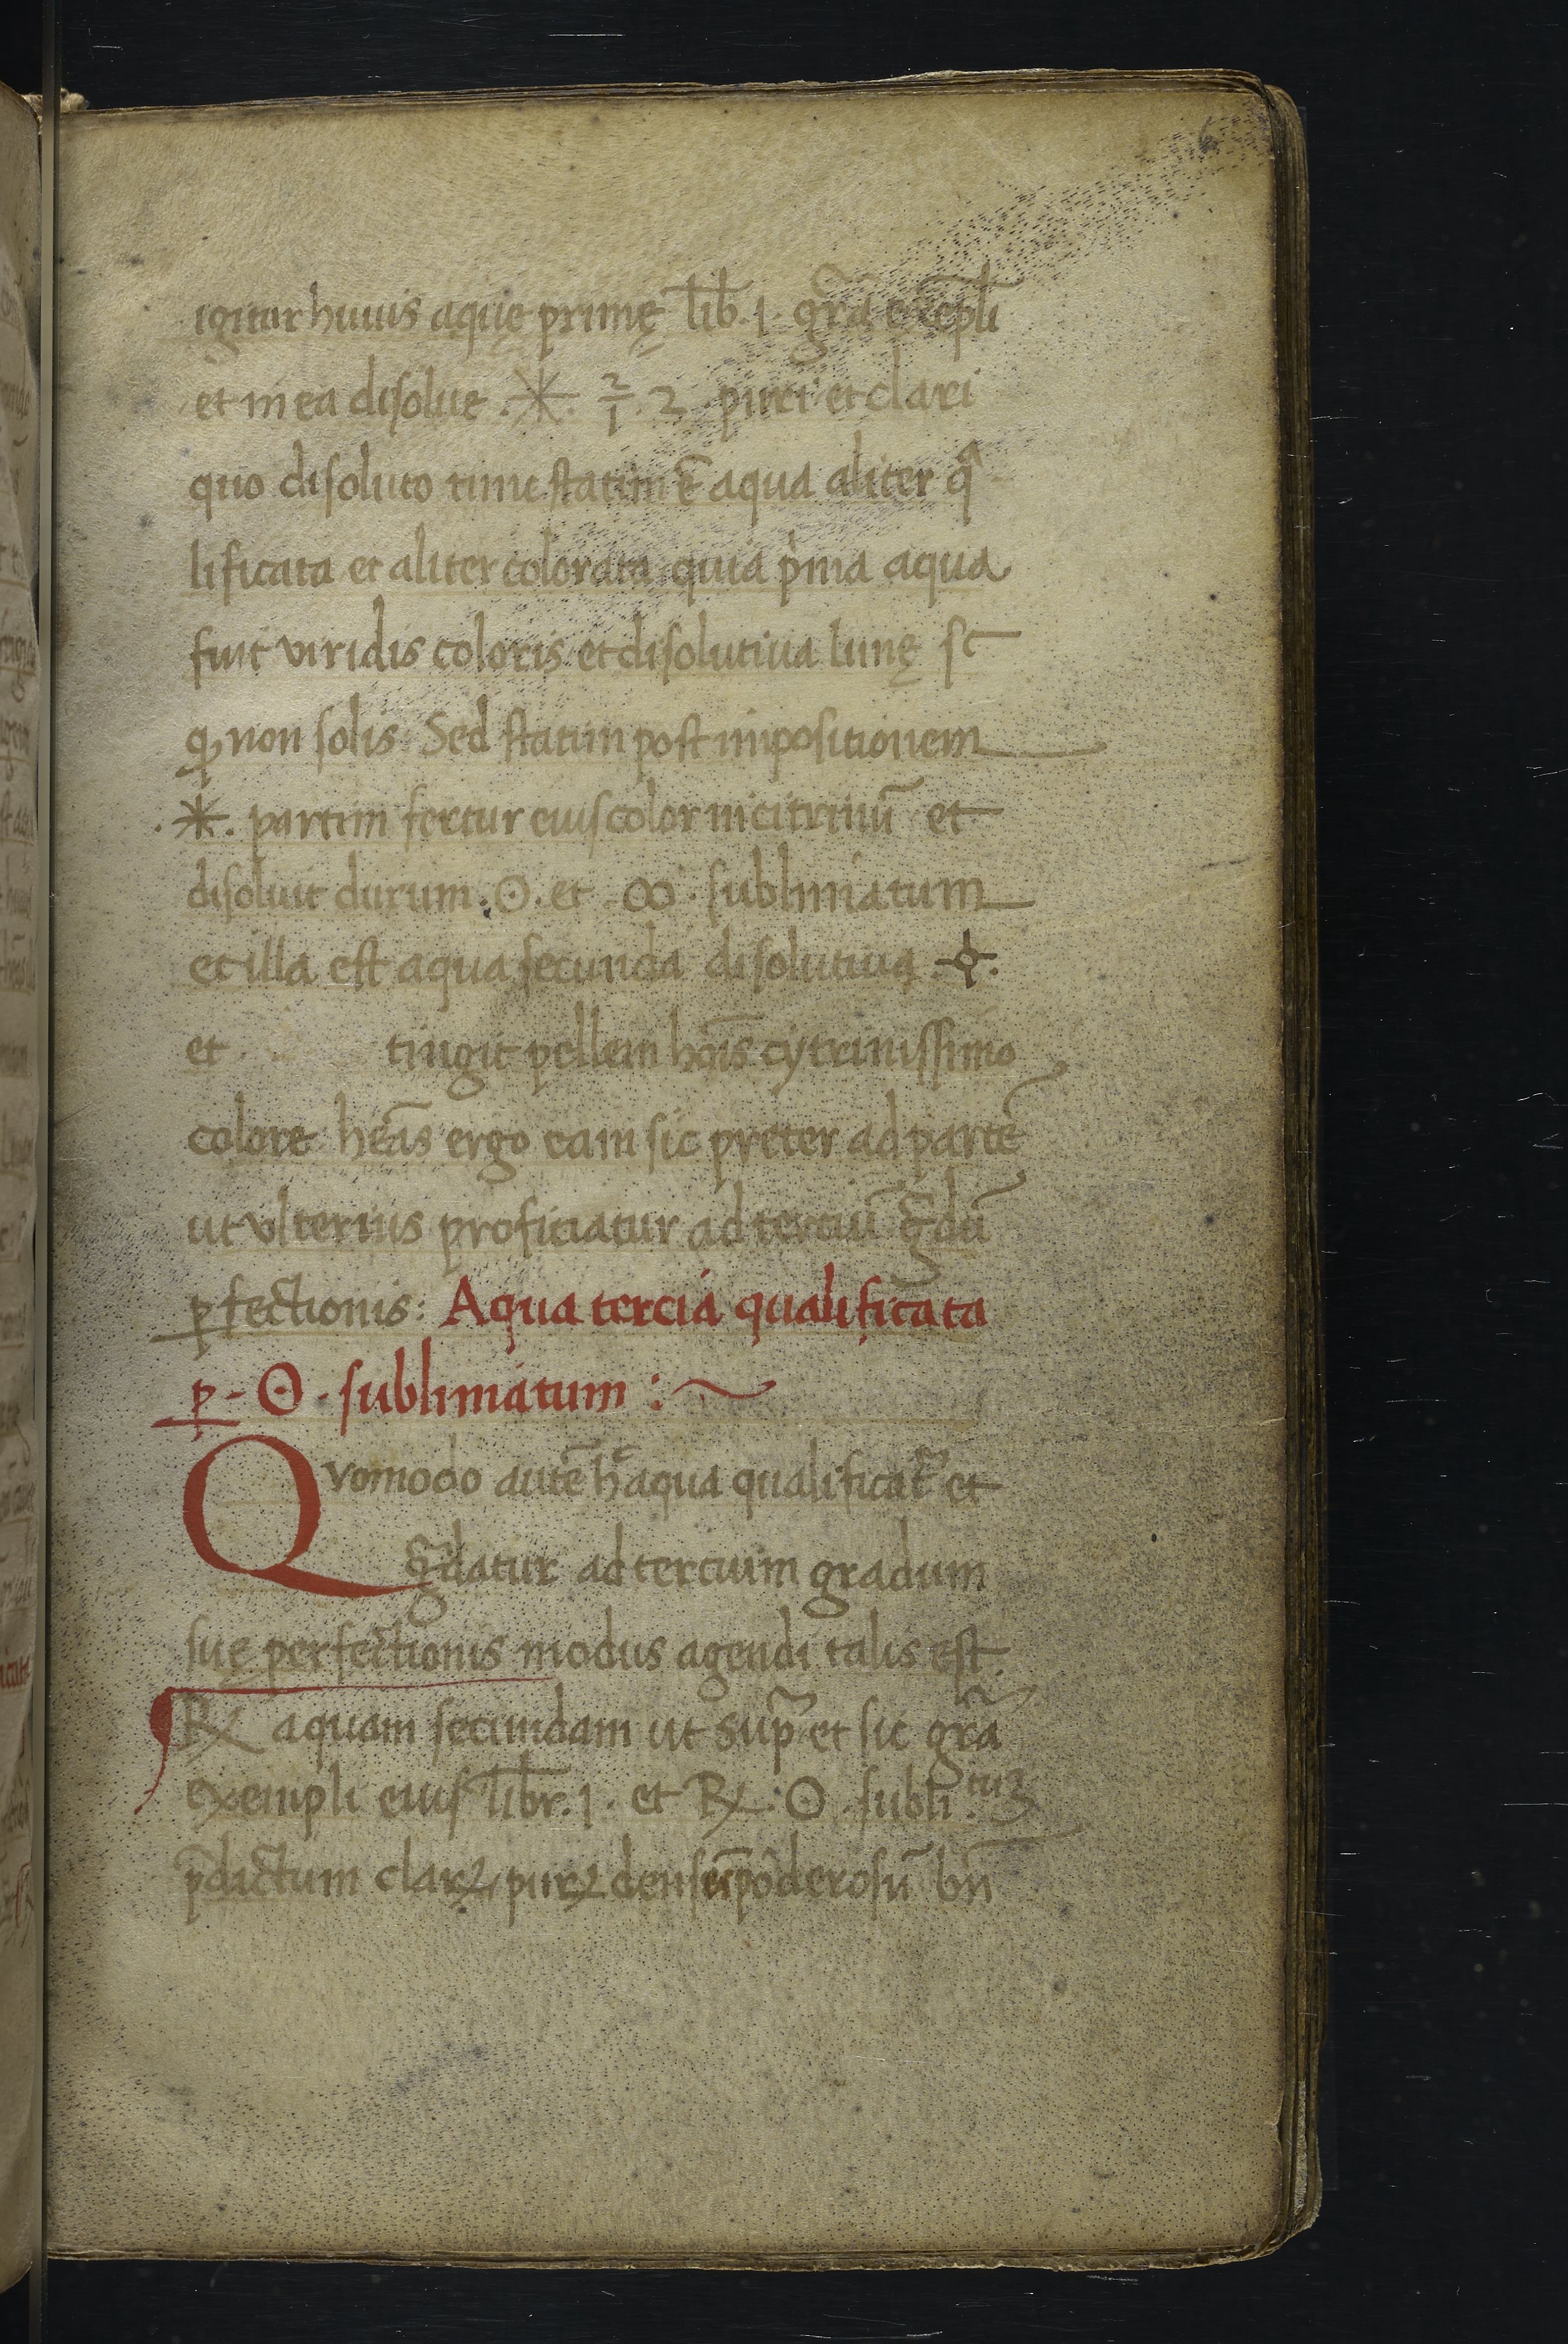 igitur huius aquę primę lib̅. 1. gr̅a exe̅pli
et in ea disolue .✳. 2/1 . 2 . puri et clari
quo disoluto tunc statim ē aqua aliter qᵃ
lificata et aliter colorata quia pͥma aqua
fuit viridis coloris et disolutiua lunę sc
ꝙ non solis: Sed statim post impositionem
.✳. partim fertur eius color in citrinu̅ et
disoluit durum .☉. et .∞. sublimatum
et illa est aqua secunda disolutiua
et tingit pellem ho̅is cytrinissimo
colore hea̅s ergo eam sic preter ad parte̅
ut vlterius proficiatur ad terciu̅ gᵃdu̅
ꝑfectionis: Aqua tercia qualificata
ꝑ - ☉ . sublimatum : ~
Qvomodo aute̅ h̅ aqua qualificat᷑ et
gᵃdatur ad tercium gradum
suę perfectionis modus agendi talis est.
℞ aquam secundam ut supᵃ et sic gr̅a
exempli eius lib̅r. 1. et ℞ : ☉ . subli .tuꝫ
p̅dictum claꝝ puꝝ dense̅ po̅derosu̅ bn̅